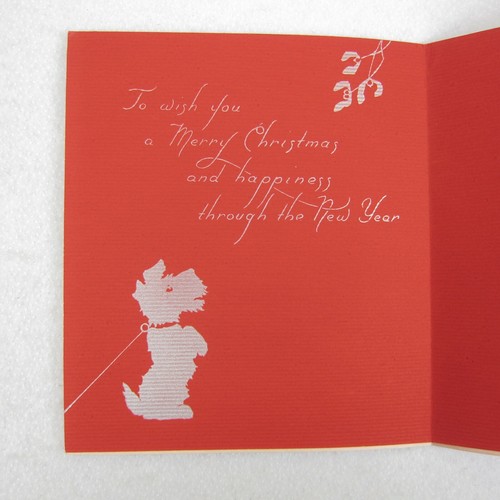 To wish you
a Merry Christmas
and happiness
through the New Year